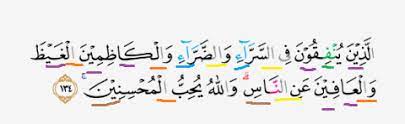 الَّذِيْنَ يُنْفِقُوْنَ فِى السَّرَّاۤءِ وَالضَّرَّاۤءِ وَالْكَاظِمِيْنَ الْغَيْظَ
وَالْعَافِيْنَ عَنِ النَّاسِۗ وَاللّٰهُ يُحِبُّ الْمُحْسِنِيْنَۚ ١٣٤